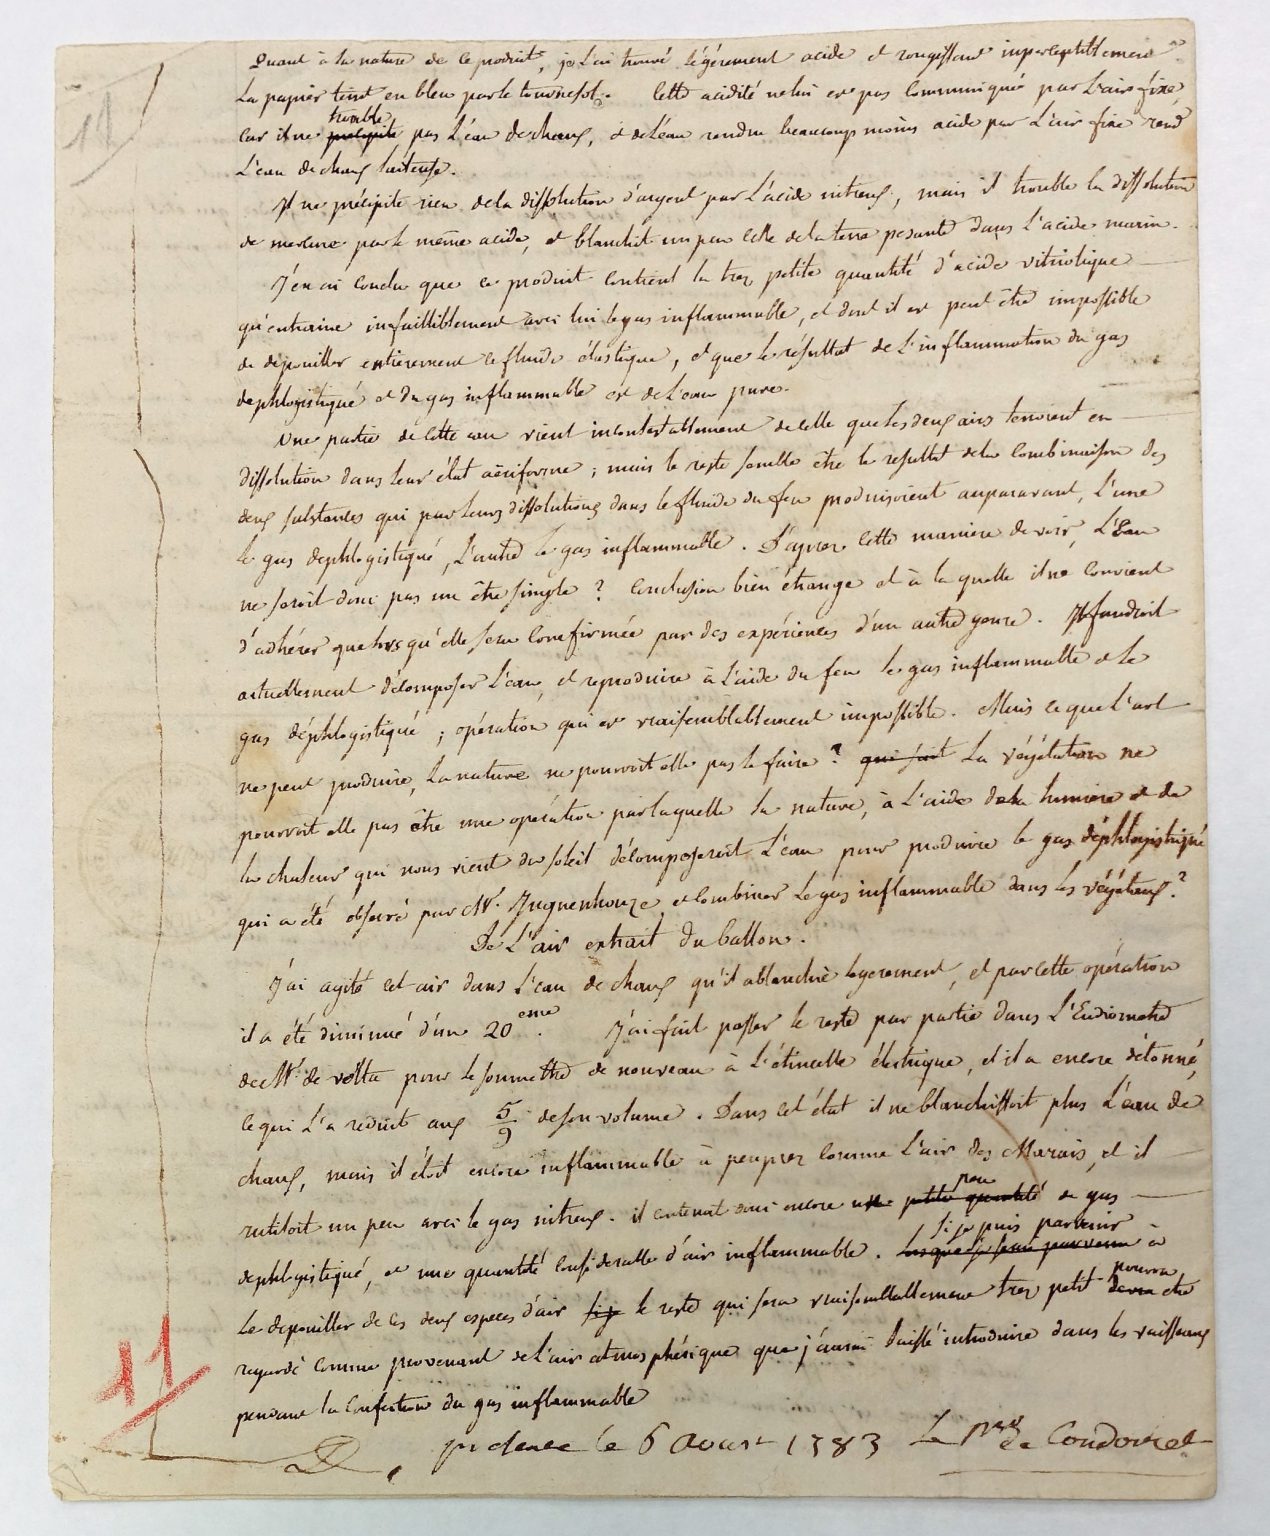 11
Quant à la nature de ce produit, je l'ai trouvé légèrement acide et rougissant imperceptiblement
le papier teint en bleu par le tournesol. Cette acidité ne lui est pas communiqué par l'air fixe,
trouble
car il ne précipite pas l'eau de chaux, et de l'eau rendue beaucoup moins acide par l'air fixe rend
l'eau de chaux laiteuse.
Il ne précipite rien de la dissolution d'argent par l'acide nitreux, mais il trouble la dissolution
de mercure par le même acide, et blanchit un peu celle de la terre pesante dans l'acide marin.
J'en ai conclu que ce produit contient la trez petite quantité d'acide vitriolique
qu'entraine infailliblement avec lui le gas inflammable, et dont il est peut être impossible
de dépouiller entierement ce fluide élastique, et que le résultat de l'inflammation du gas
dephlogistiqué et du gas inflammable est de l'eau pure.
Une partie de cette eau vient incontestablement de celle que les deux airs tenoient en
dissolution dans leur état aëriforme ; mais le reste semble être le resultat de la combinaison des
deux substances qui par leurs dissolutions dans le fluide du feu produisoient auparavant, l'une
le gas dephlogistiqué, l'autre le gas inflammable. D'aprez cette maniere de voir, l'Eau
ne seroit donc pas un être simple ? Conclusion bien étrange et à la quelle il ne convient
d'adhérer que lors qu'elle sera confirmée par des expériences d'un autre genre. Il faudroit
actuellement décomposer l'eau, et reproduire à l'aide du feu le gas inflammable et le
gas déphlogistiqué ; opération qui est vraisemblablement impossible. Mais ce que l'art
ne peut produire, la nature ne pourroit elle pas le faire ? qui sait la végétation ne
pourroit elle pas être une opération par laquelle la nature, à l'aide de la lumiere et de
la chaleur qui nous vient du soleil décomposeroit l'eau pour produire le gas déphlogistiqué
qui a été observé par Mr. Inguenhouze, et combiner le gas inflammable dans les végétaux ?
De l'air extrait du ballon.
J'ai agité cet air dans l'eau de chaux qu'il a blanchie legerement, et par cette opération
il a été diminué d'un 20eme. J'ai fait passer le reste par partie dans l'Eudiometre
de Mr. de volta pour le soumettre de nouveau à l'étincelle électrique, et il a encore détonné,
ce qui l'a réduit aux 5/9 de son volume. Dans cet état il ne blanchissoit plus l'eau de
chaux, mais il étoit encore inflammable à peu prez comme l'air des Marais, et il
peu
rutiloit un peu avec le gas nitreux. il contenoit donc encore une petite quantité de gas
si je puis parvenir
dephlogistiqué, et une quantité considerable d'air inflammable. lorsque je serai parvenu à
pourra
le depouiller de ces deux especes d'air si je le reste qui sera vraisemblablement trez petit devra etre
regardé comme provenant de l'air atmosphérique que j'aurai laissé introduire dans les vaisseaux
pendant la confection du gas inflammable
11
le 6 aoust 1783 Le Mis de Condorcet